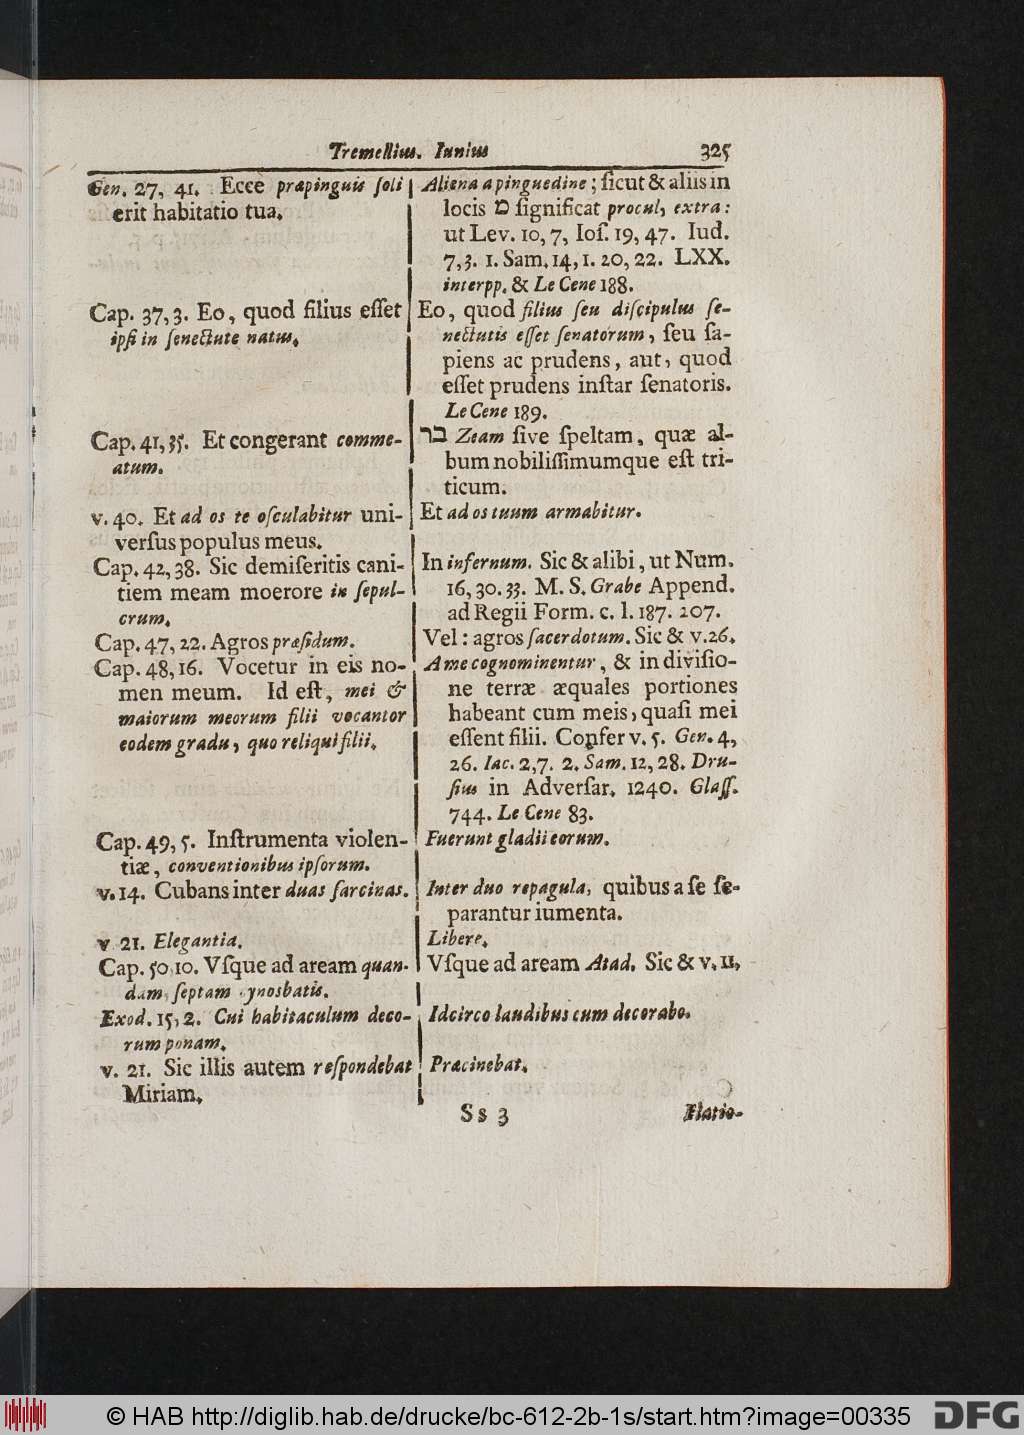 Tremellius. Iunius 325
Gen. 27, 41. Ecce præpinguis soli
erit habitatio tua.
Cap. 37, 3. Eo, quod filius eſſet
ipſi in ſenectute natus.
Cap. 41, 35. Et congerant comme-
atum.
v. 40. Et ad os te oſculabitur uni-
verſus populus meus.
Cap. 42, 38. Sic demiſeritis cani-
tiem meam moerore in ſepul-
crum.
Cap. 47, 22. Agros præſidum.
Cap. 48, 16. Vocetur in eis no-
men meum. Id eſt, mei &
maiorum meorum filii vocantor
eodem gradu, quo reliqui filii.
Cap. 49, 5. Inſtrumenta violen-
tiæ, conventionibus ipſorum.
v. 14. Cubans inter duas ſarcinas.
v 21. Elegantia.
Cap. 50, 10. Vſque ad aream quan-
dam ſeptam ynosbatis.
Exod. 15, 2. Cui habitaculum deco-
rum ponam.
v. 21. Sic illis autem reſpondebat
Miriam.
Aliena a pinguedine; ſicut & aliis in
locis מ ſignificat procul, extra:
ut Lev. 10, 7, Ioſ. 19, 47. Iud.
7, 3. 1. Sam. 14, 1. 20, 22. LXX.
interpp. & Le Cene 188.
Eo, quod filius ſeu diſcipulus ſe-
nectutis eſſet ſenatorum, ſeu ſa-
piens ac prudens, aut, quod
eſſet prudens inſtar ſenatoris.
Le Cene 189.
בר Zeam ſive ſpeltam, quæ al-
bum nobiliſſimumque eſt tri-
ticum.
Et ad os tuum armabitur.
In infernum. Sic & alibi, ut Num.
16, 30. 33. M. S. Grabe Append.
ad Regii Form. c. l. 187. 207.
Vel: agros ſacerdotum. Sic & v. 26.
A me cognominentur, & in diviſio-
ne terræ æquales portiones
habeant cum meis, quaſi mei
eſſent filii. Confer v. 5. Gen. 4,
26. Iac. 2, 7. 2. Sam. 12, 28. Dru-
ſius in Adverſar. 1240. Glaſſ.
744. Le Cene 83.
Fuerunt gladii eorum.
Inter duo repagula, quibus a ſe ſe-
parantur iumenta.
Libere.
Vſque ad aream Atad. Sic & v. 11,
Idcirco laudibus eum decorabo.
Præcinebat.
Ss 3 Flatio-
© HAB http://diglib.hab.de/drucke/bc-612-2b-1s/start.htm?image=00335 DFG